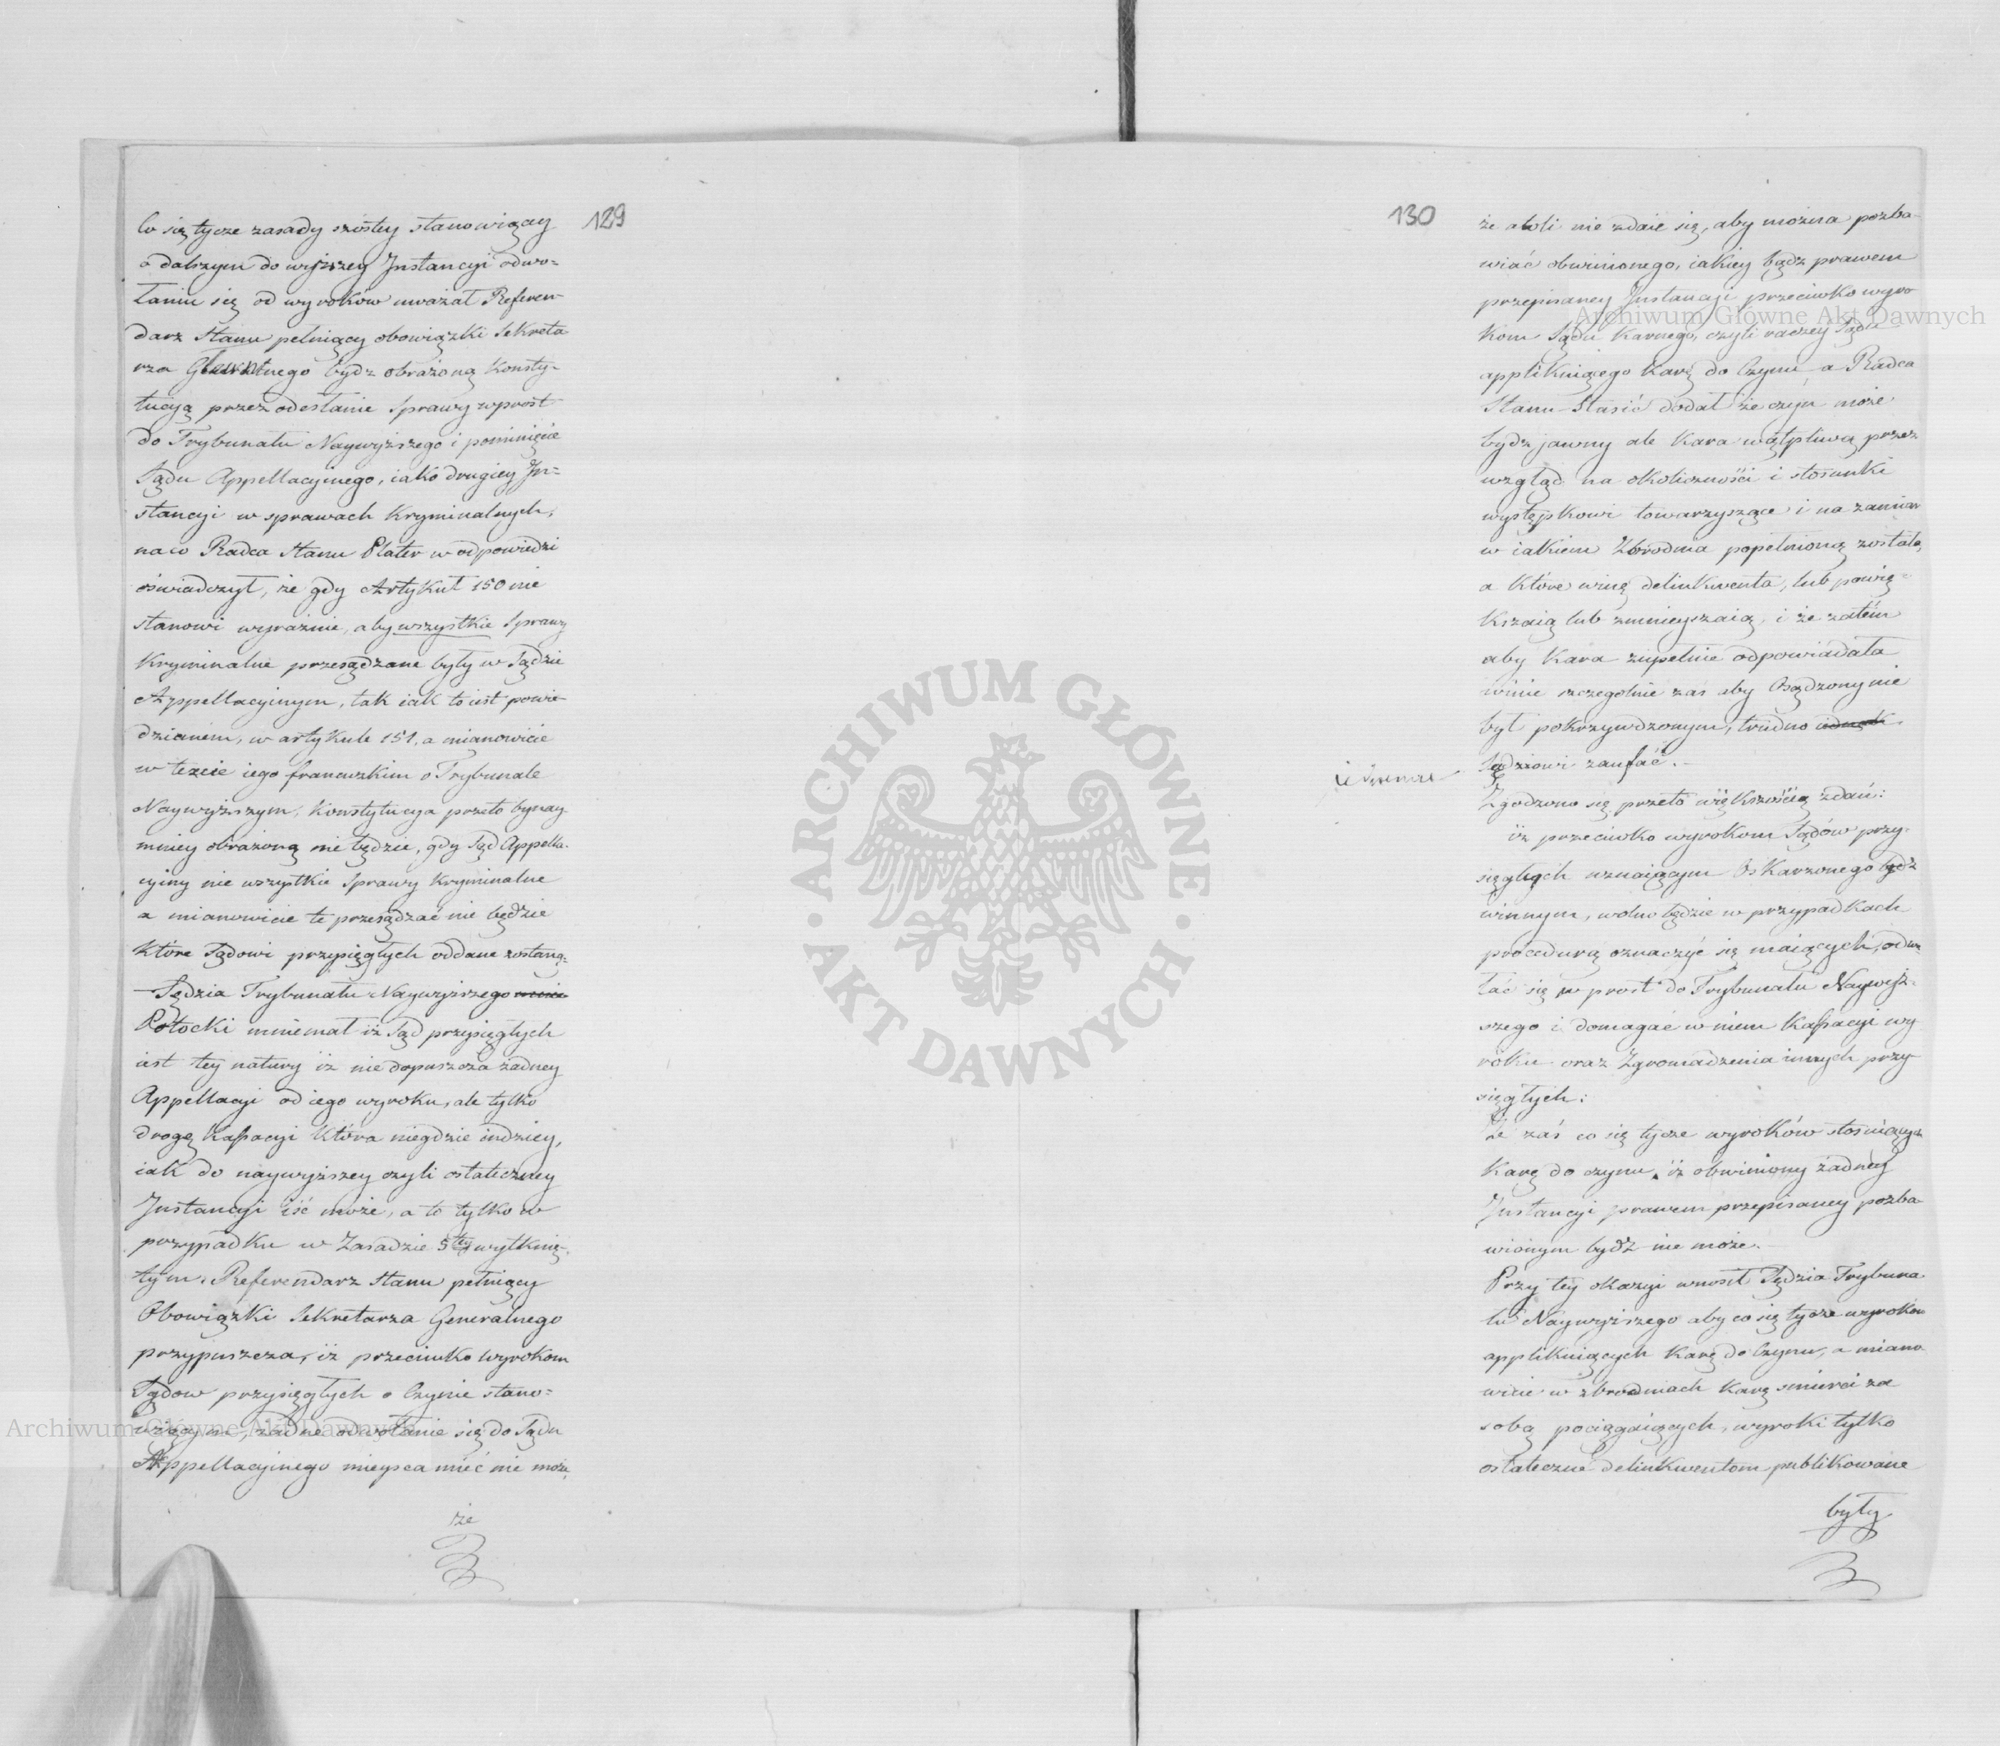 129
Co się tycze zasady szóstey stanowiącey
o dalszym do wyższey Instancyi odwo=
łaniu się od wyroków uważał Referen-
darz Stanu pełniący obowiązki Sekreta
rza Generalnego bydz obrażoną Konsty-
tucyą przez odesłanie Sprawy wprost
do Trybunału Naywyższego i pominięcie
Sądu Appellacyinego, iako drugiey In=
stancyi w sprawach Kryminalnych,
naco Radca Stanu Plater w odpowiedzi
oświadczył, że gdy Artykuł 150 nie
stanowi wyraźnie, aby wszystkie Sprawy
Kryminalne przesądzane były w Sądzie
Appellacyinym, tak iak to iest powie-
dzianem, w artykule 151, a mianowicie
w texcie iego francuzkim o Trybunale
Naywyższym, Konstytucya przeto bynay-
mniey obrażoną nie będzie, gdy Sąd Appella-
cyiny nie wszystkie Sprawy Kryminalne
a mianowicie te przesądzać nie będzie
Które Sądowi przysięgłych oddane zostaną.
Sędzia Trybunału Naywyższego
Potocki mniemał iż Sąd przysięgłych
iest tey natury iż nie dopuszcza żadney
Appellacyi od iego wyroku, ale tylko
drogę Kassacyi Która niegdzie indziey,
iak do naywyższey czyli ostateczney
Instancyi iść może, a to tylko w
przypadku w Zasadzie 5tey wytknię-
tym. Referendarz Stanu pełniący
Obowiązki Sekretarza Generalnego
przypuszcza, iż przeciwko wyrokom
Sądow przysięgłych o Czynie stano=
wiącym, żadne odwołanie się do Sądu
Appellacyinego mieysca mieć nie może,
że
130
że atoli nie zdaie się, aby można pozba-
wiać obwinionego, iakiey bądz prawem
przepisaney Instancyi przeciwko wyro
kom Sądu Karnego, czyli raczey Sądu
applikuiącego Karę do Czynu, a Radca
Stanu Stasic dodał że czyn może
bydz jawny ale Kara wątpliwą przez
wzgląd na okoliczności i stosunki
występkowi towarzyszące i na zamiar
w iakiem Zbrodnia popełnioną została,
a Które winę delinkwenta, lub powię-
kszaią lub zmnieyszaią, i że zatém
aby Kara zupełnie odpowiadała
winie szczególnie zaś aby Osądzony nie
był pokrzywdzonym, trudno iednak
Sędziowi zaufać.
Zgodzono się przeto większością zdań:
iż przeciwko wyrokom Sądów przy-
sięgłych uznaiącym Oskarzonego bydz
winnym, wolno będzie w przypadkach
procedurą oznaczyć się maiących, odwo
łać się w prost do Trybunału Naywyż-
szego i domagać w niem Kassacyi wy
roku oraz Zgromadzenia innych przy
sięgłych:
Że zaś co się tycze wyroków stosuiących
Karę do czynu, iż obwiniony żadney
Instancyi prawem przepisaney pozba-
wionym bydź nie może.
Przy tey okazyi wnosił Sędzia Trybuna
łu Naywyższego aby co się tycze wyroków
applikuiących Karę do Czynu, a miano
wicie w zbrodniach Karę smierci za
sobą pociągaiących, wyroki tylko
ostateczne delinkwentom publikowane
były
Archiwum Główne Akt Dawnych
Archiwum Główne Akt Dawnych
ARCHIWUM GŁÓWNE
AKT DAWNYCH